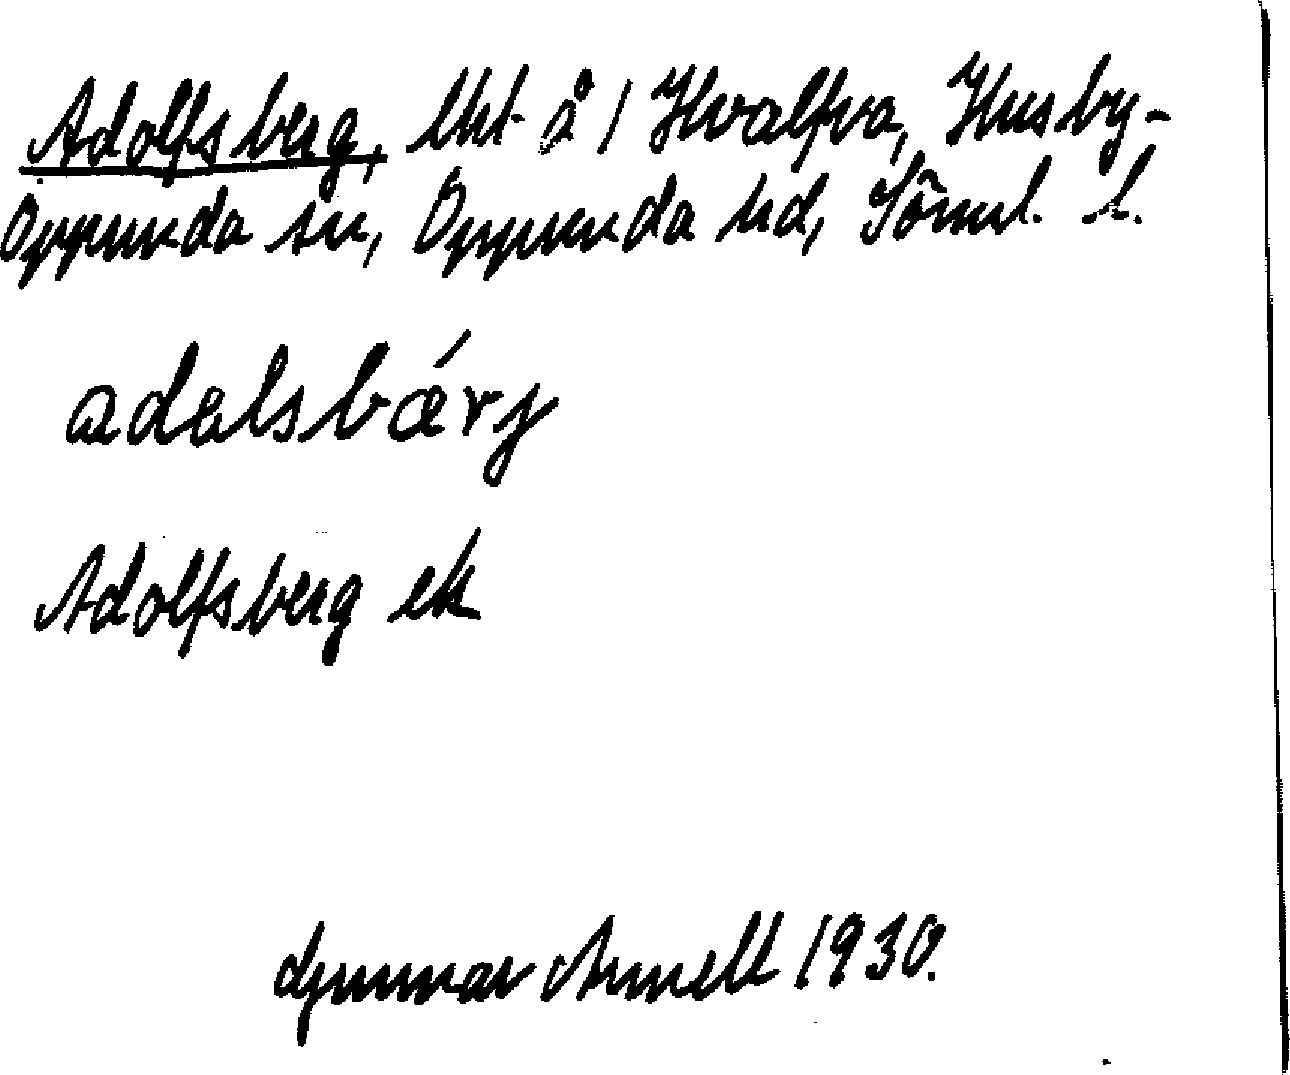 Adolfsberg, lht å 1 Hvalfva, Husby-
Oppunda sn, Oppunda hd, Söml. l.
adalsbǽrj
Adolfsberg ek
Gunnar Arnell 1930.